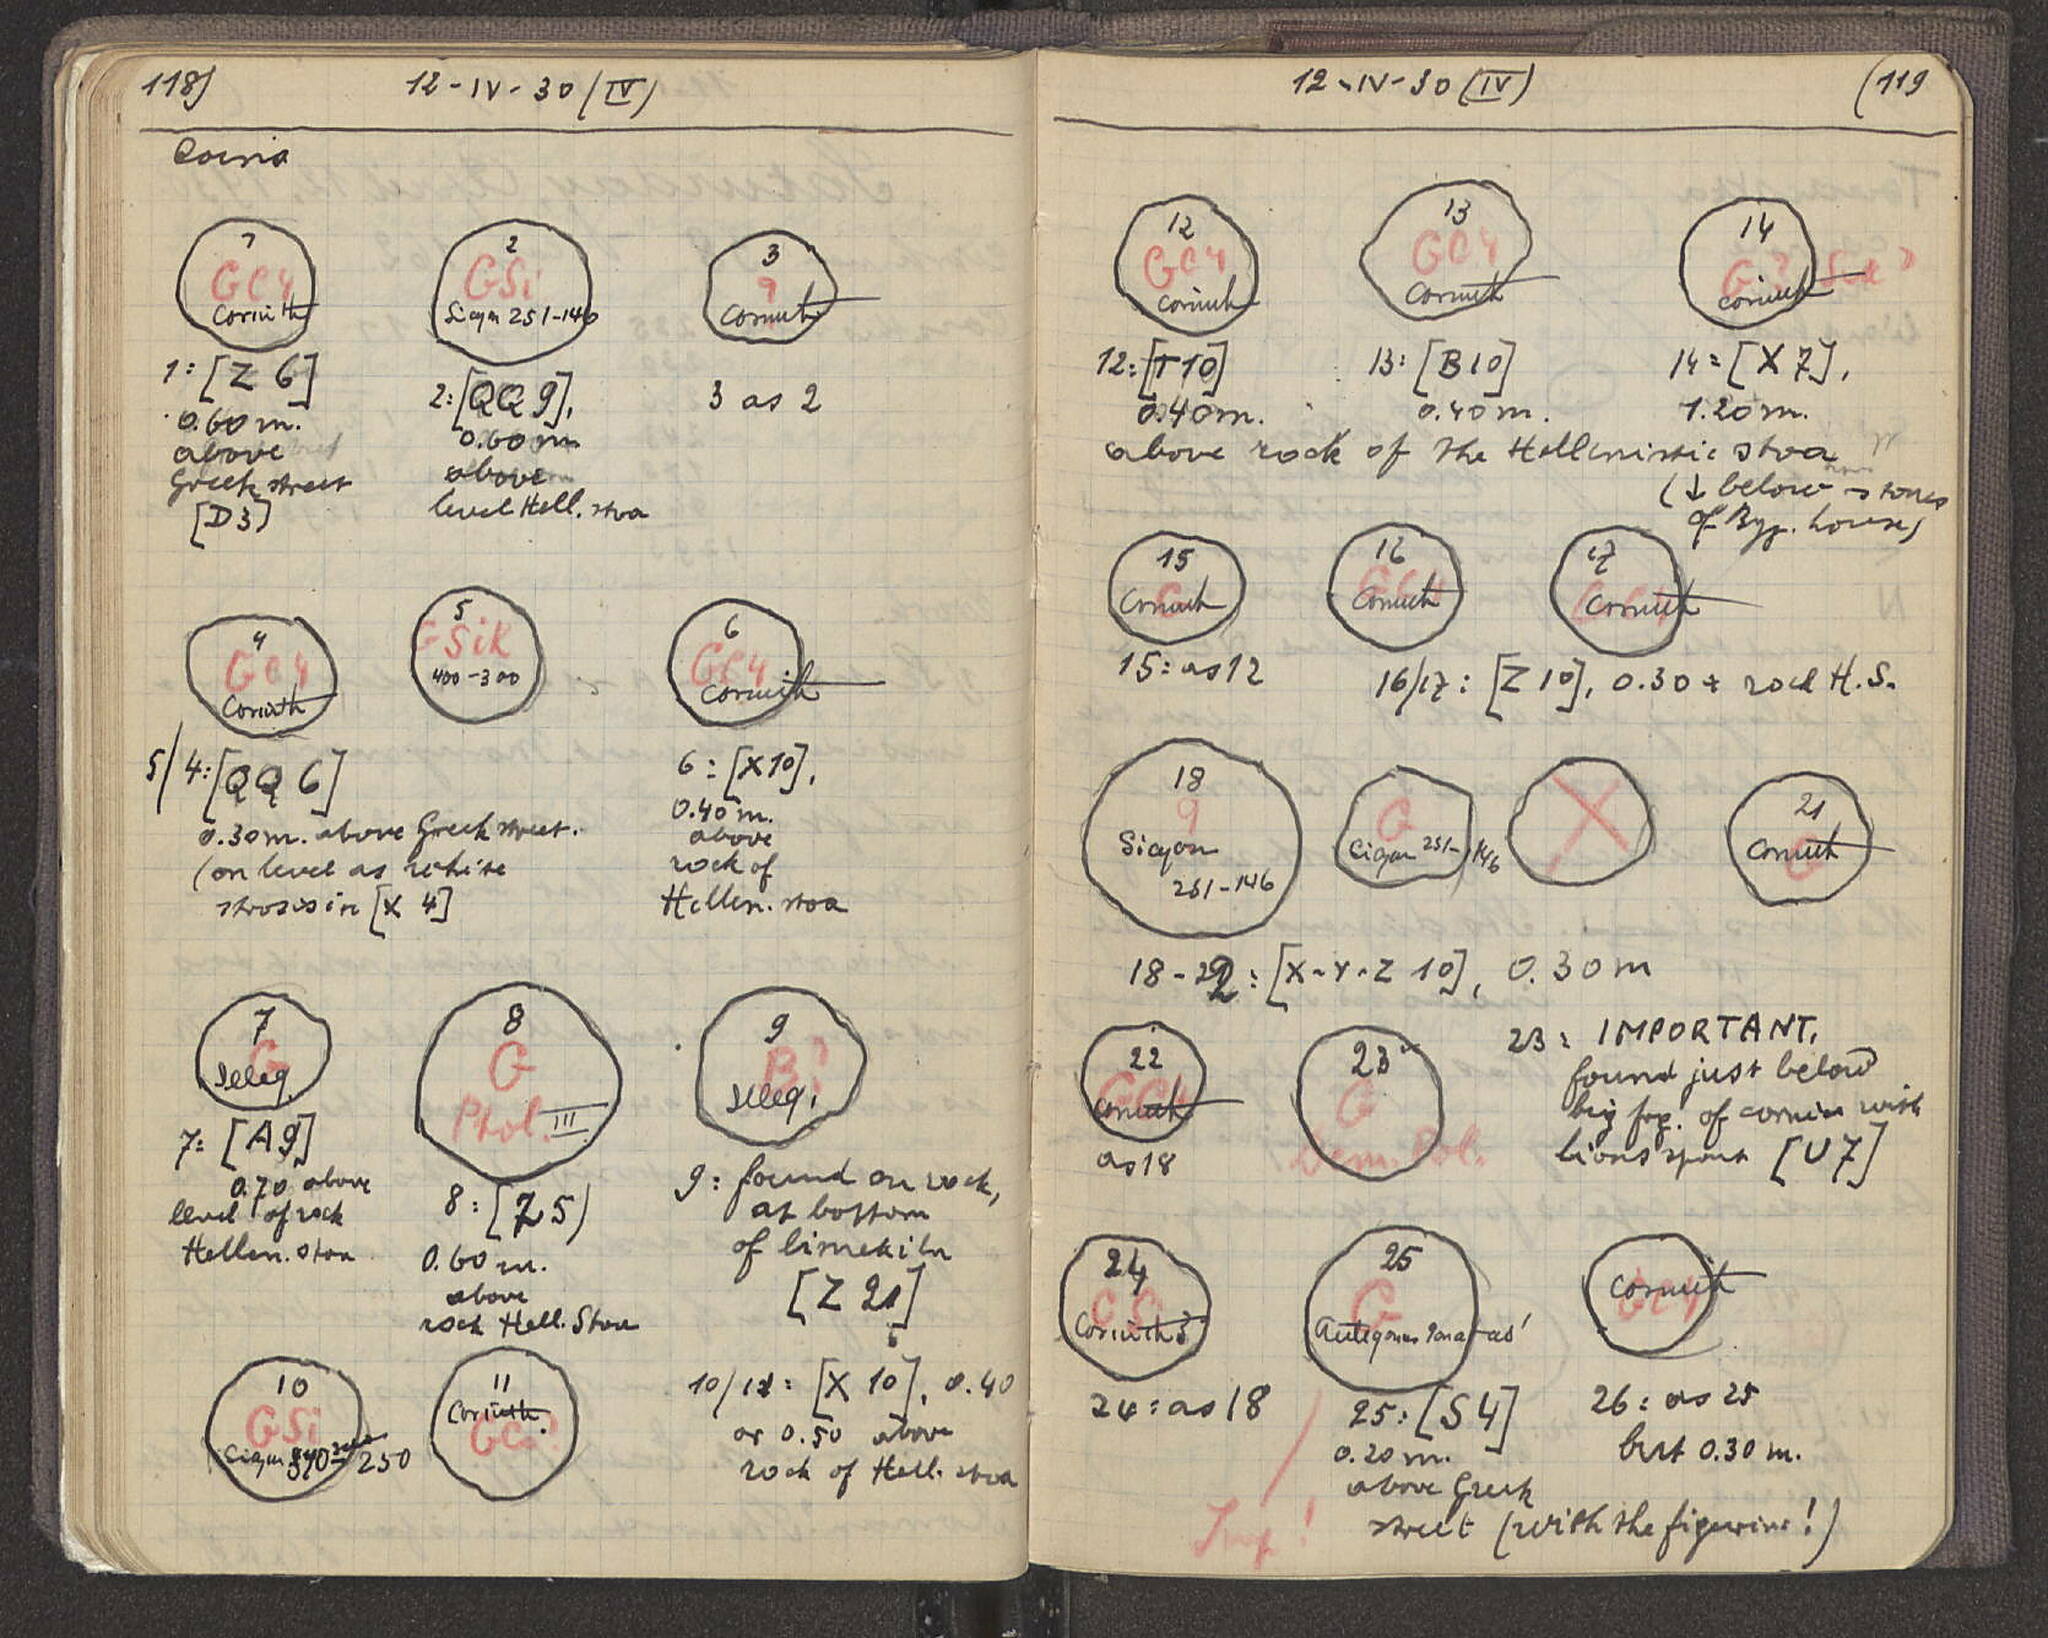 118)
12-IV-30 (IV)
Coins
1
GC4
Corinth
2
GSi
Sicyon 251-146
3
?
Corinth
1: [Z 6]
0.60 m.
above
Greek street
[D3]
2: [QQ 9],
0.60 m
above
level Hell. stoa
3 as 2
4
GC4
Corinth
5
GSiK
400-300
6
GC4
Corinth
5/4: [QQ 6]
0.30 m. above Greek street.
(on level as white
strosis in [X 4]
6: [X10],
0.40 m.
above
rock of
Hellen. stoa
7
G
illeg.
8
G
Ptol. III
9
B?
illeg.
7: [A9]
0.70 above
level of rock
Hellen. stoa
8: [Z 5)
0.60 m.
above
rock Hell. Stoa
9: found on rock,
at bottom
of limekiln
[Z 21]
10
GSi
250
11
Corinth.
GC?
10/11: [X 10], 0.40
or 0.50 above
rock of Hell. stoa
12-IV-30 (IV)
(119
12
GC4
Corinth
13
GC4
Corinth
14
G?
Corinth
12: [T10]
0.40 m.
13: [B10]
0.40 m.
14: [X 7],
1.20 m.
above rock of the Hellenistic stoa
(↓ below stones
of Byz. house)
15
G
Corinth
16
GC4
Corinth
17
Corinth
15: as 12
16/17: [Z 10], 0.30 + rock H.S.
18
?
Sicyon
251-146
G
Sicyon 251-146
X
21
G
Corinth
18-22: [X-Y-Z 10], 0.30 m
22
GC4
Corinth
as 18
23
G
Dem. Pol.
23: IMPORTANT,
found just below
big frg. of cornice with
lions spout [U 7]
24
Corinth 3
25
G
Antigonus Gonatas
GC4
Corinth
24: as 18
25: [S 4]
0.20 m.
above Greek
street (with the figurine!)
26: as 25
but 0.30 m.
Imp!